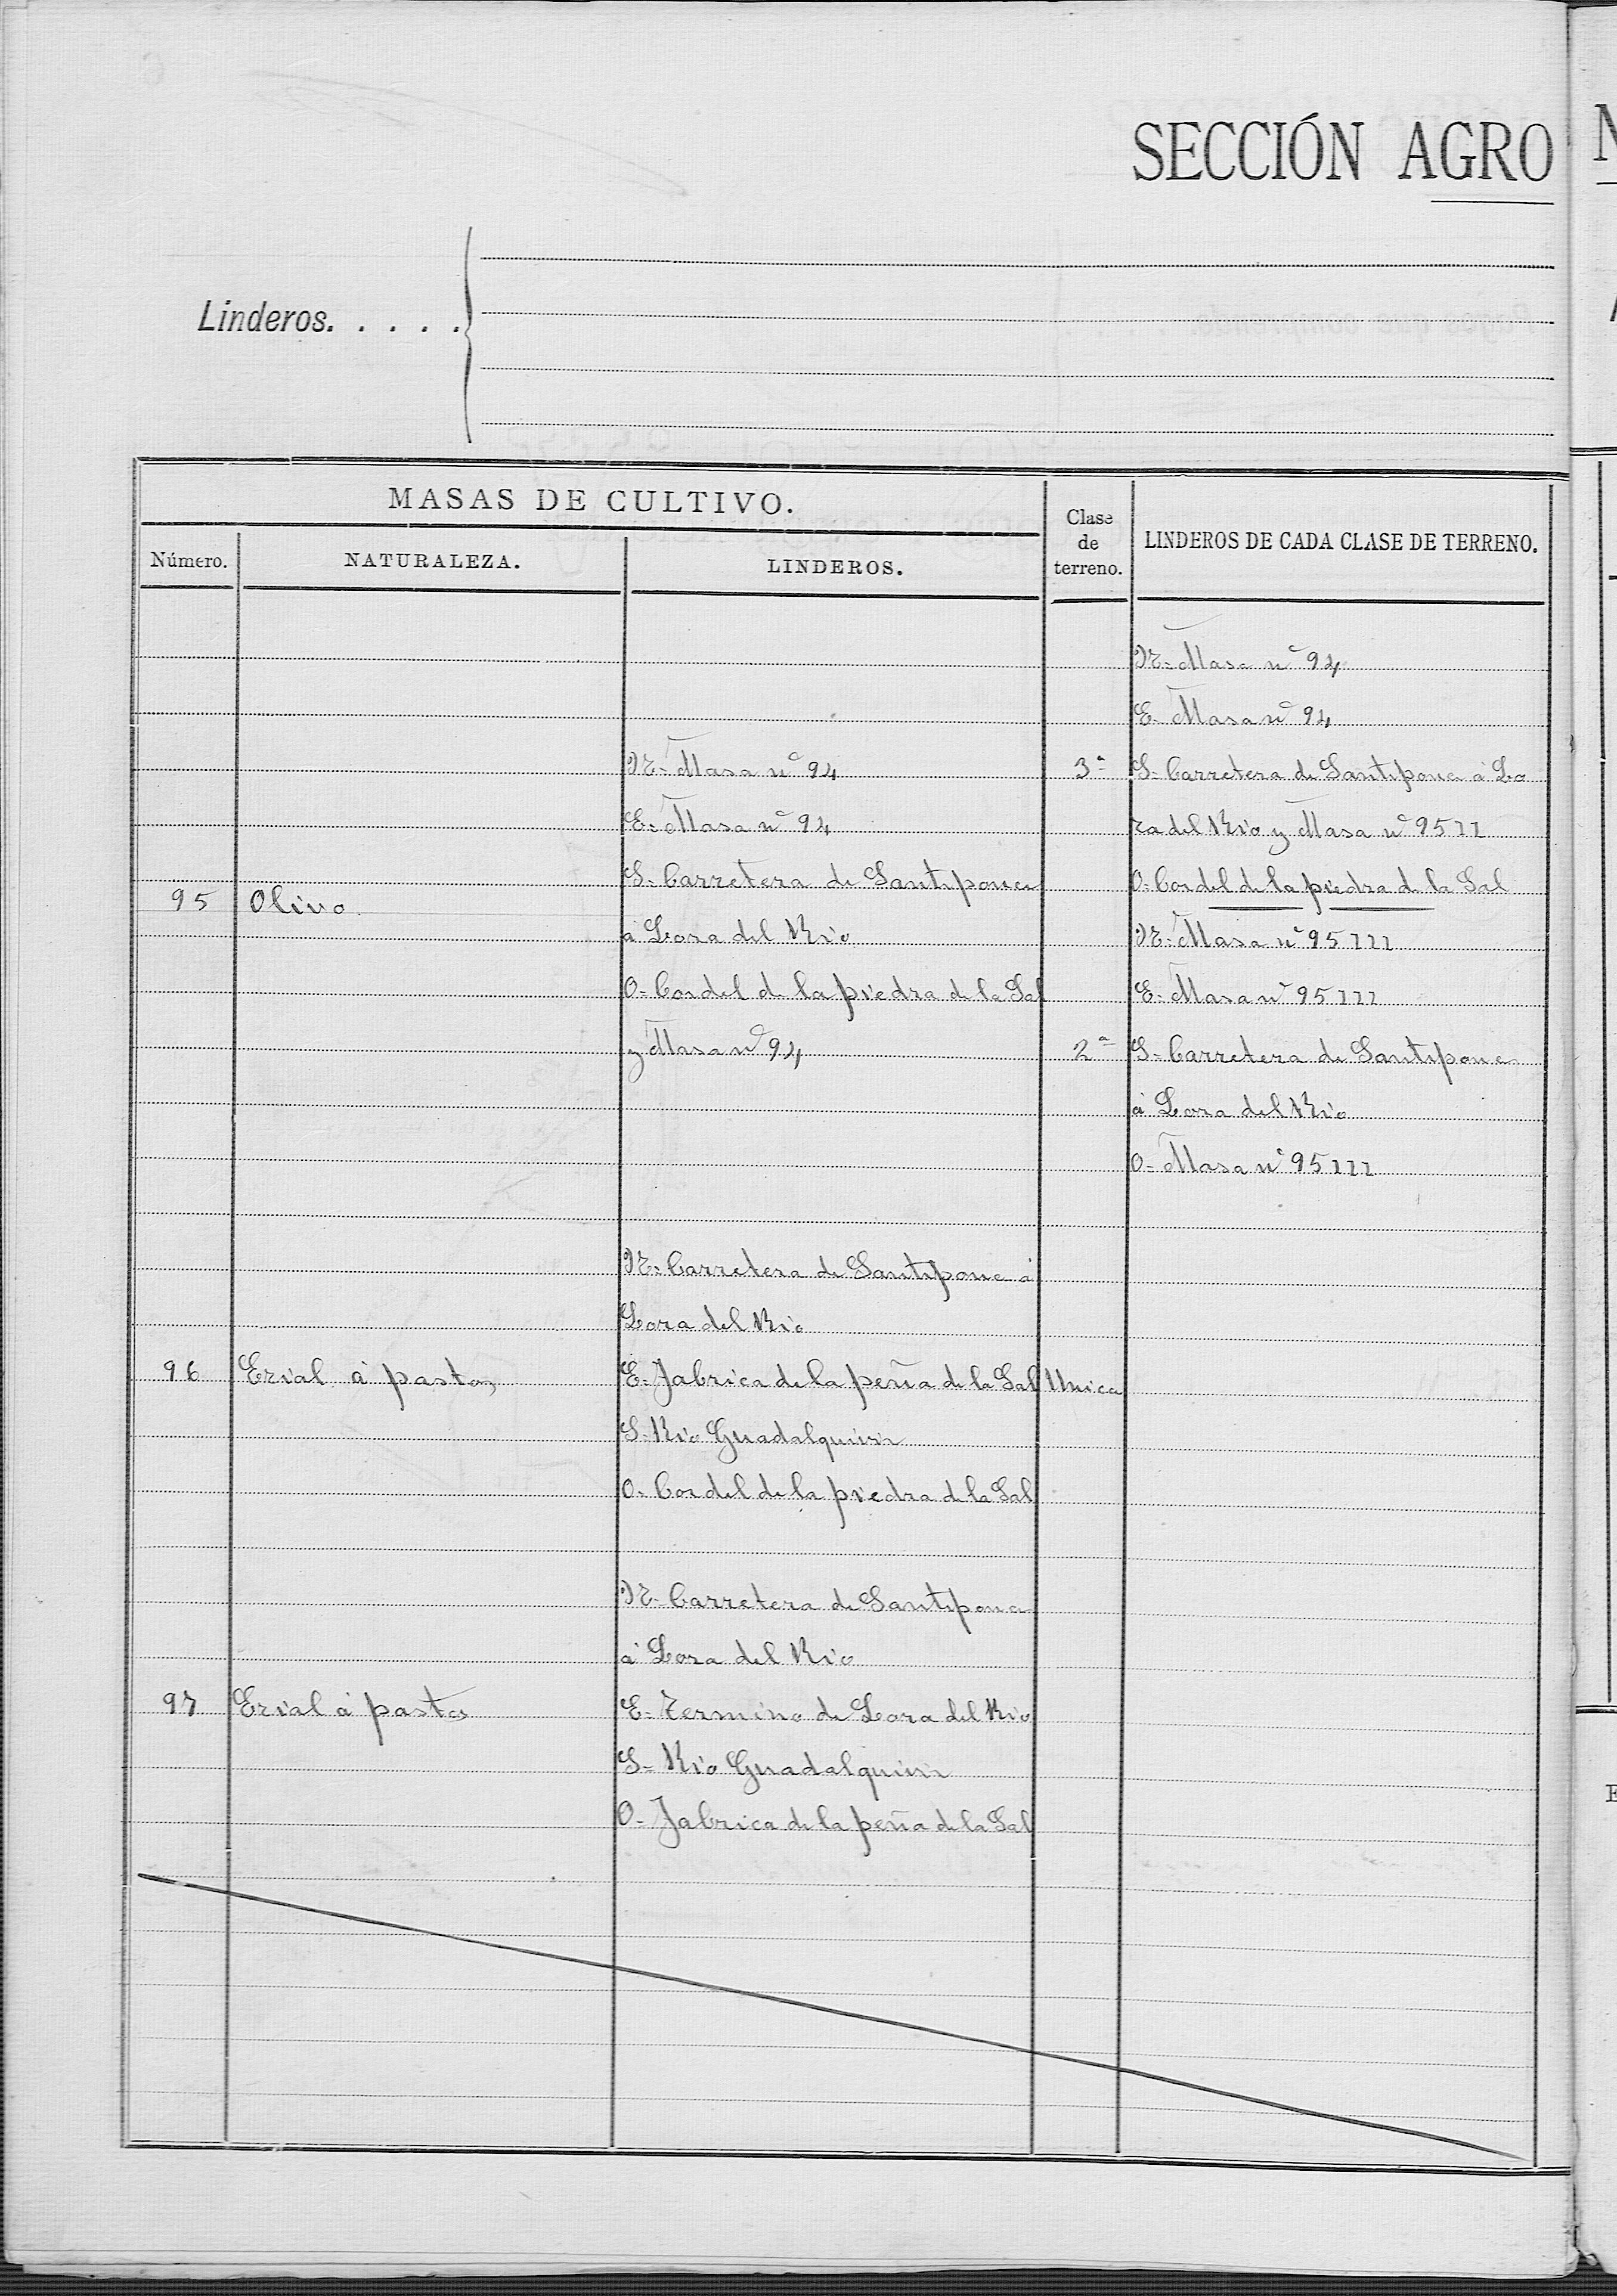 SECCIÓN AGRO
Linderos. . . . .
MASAS DE CULTIVO.
Clase de terreno.
LINDEROS DE CADA CLASE DE TERRENO.
Número.
NATURALEZA.
LINDEROS.
N- Masa nº 94
E- Masa nº 94
N- Masa nº 94 3ª S- Carretera de Santiponce á Lo
E- Masa nº 94 ra del Rio y Masa nº 95 II
S- Carretera de Santiponce O- Cordel de la piedra de la Sal
95 Olivo.
á Lora del Rio N- Masa nº 95 III
O- Cordel de la piedra de la Sal E- Masa nº 95 III
y Masa nº 94 2ª S- Carretera de Santiponce
á Lora del Rio
O- Masa nº 95 III
N- Carretera de Santiponce á
Lora del Rio
96 Erial á pastos E- Fabrica de la peña de la Sal Unica
S- Rio Guadalquivir
O- Cordel de la piedra de la Sal
N- Carretera de Santiponce
á Lora del Rio
97 Erial á pastos E- Termino de Lora del Rio
S- Rio Guadalquivir
O- Fabrica de la peña de la Sal